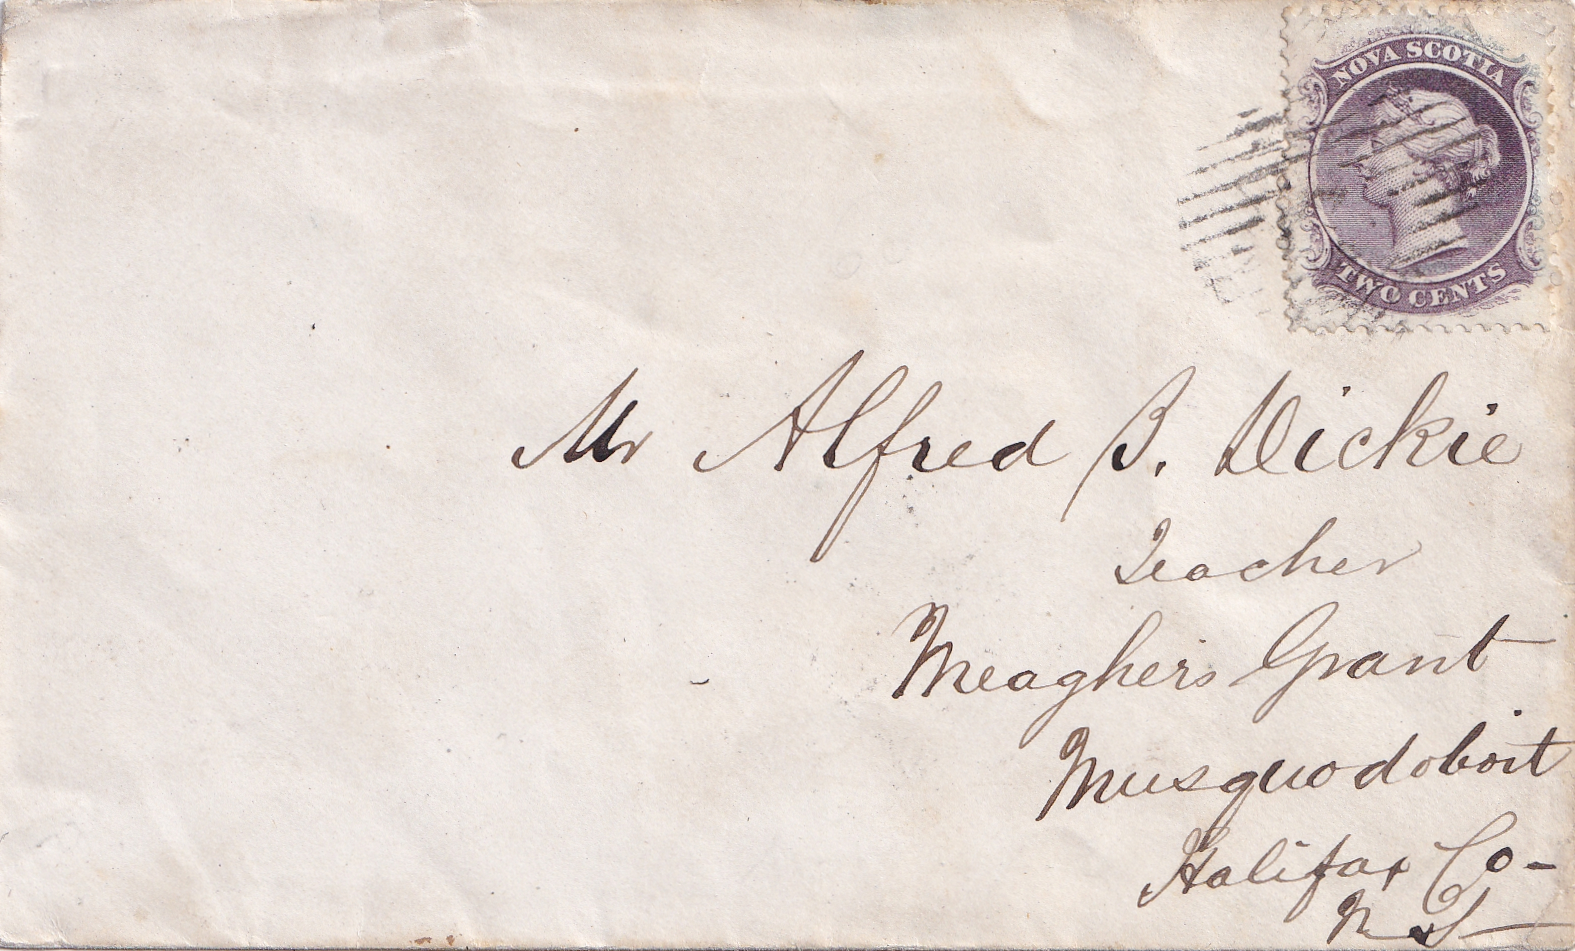 NOVA SCOTIA
TWO CENTS
Mr Alfred B. Dickie
Teacher
Meaghers Grant
Musquodoboit
Halifax Co-
N.S